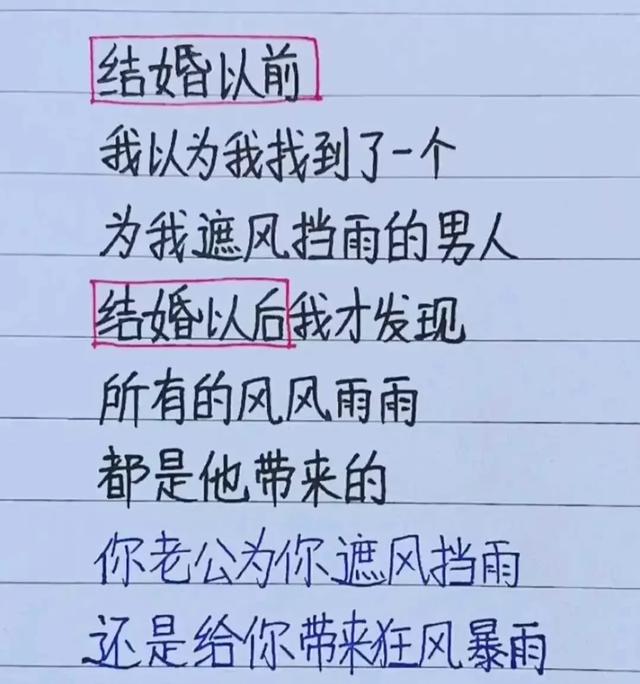 结婚以前
我以为我找到了一个
为我遮风挡雨的男人
结婚以后我才发现
所有的风风雨雨
都是他带来的
你老公为你遮风挡雨
还是给你带来狂风暴雨